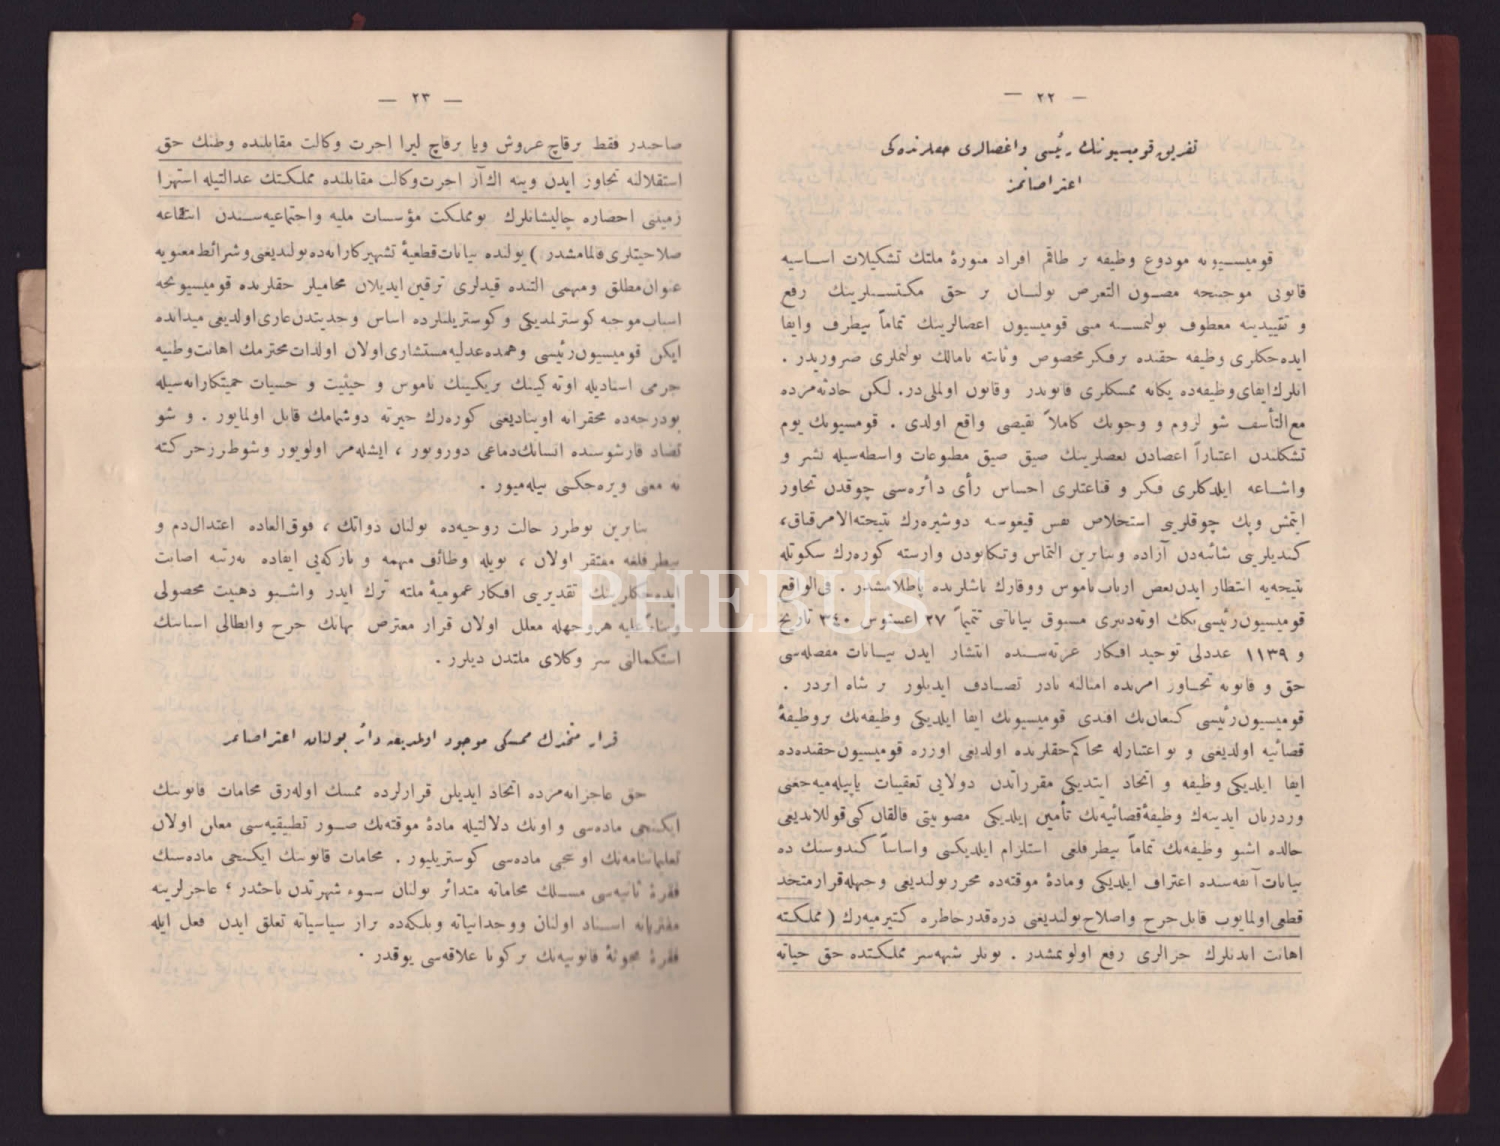 — ٢٢ —
تفريق قوميسيوننك رئيسى و اعضالرى حقلرنده كى
اعتراضاتمز
قوميسيونه مودوع وظيفه بر طاقم افراد منورۀ ملتك تشكيلات اساسيه
قانونى موجبنجه مصون التعرض بولنان بر حق مكتسبلرينك رفع
و تقييدينه معطوف بولنمسنه مبنى قوميسيون اعضالرينك تماماً بيطرف وايفا
ايده جكلرى وظيفه حقنده برفكر مخصوص وثابته نامالك بولنملرى ضروريدر .
انلرك ايفاى وظيفه ده يكانه ممسكلرى قانوندر وقانون اولملى در. لكن حادثه مزده
مع التأسف شو لزوم و وجوبك كاملاً نقيضى واقع اولدى . قومسيونك يوم
تشكلندن اعتباراً اعضادن بعضلرينك صيق صيق مطبوعات واسطه سيله نشر و
واشاعه ايلدكلرى فكر و قناعتلرى احساس رأى دائره سنى چوقدن تجاوز
ايتمش وپك چوقلرينى استخلاص نفس قيغوسنه دوشيره رك نتيجته الامر قباق،
كنديلرينى شائبه دن آزاده وبنابرين التماس وتكاپودن وارسته كوره رك سكوتله
نتيجه يه انتظار ايدن بعض ارباب ناموس ووقارك باشلرنده پاطلامشدر . فى الواقع
قوميسيون رئيسى بكك اوته دنبرى مسبوق بياناتى تتميماً ٢٧ اغستوس ٣٤٠ تاريخ
و ١١٣٩ عددلى توحيد افكار غزته سنده انتشار ايدن بيانات مفصله سى
حق و قانونه تجاوز امرنده امثالنه نادر تصادف ايديلور بر شاه اثردر .
قوميسيون رئيسى كنعان بك افندى قوميسيونك ايفا ايلديكى وظيفه نك بروظيفۀ
قضائيه اولديغى و بو اعتبارله محاكم حقلرنده اولديغى اوزره قوميسيون حقنده ده
ايفا ايلديكى وظيفه و اتخاذ ايتديكى مقرراتدن دولايى تعقيبات ياپيله ميه جغنى
وردزبان ايدينه رك وظيفۀ قضائيه نك تأمين ايلديكى مصونيتى قالقان كى قوللانديغى
حالده اشبو وظيفه نك تماماً بيطرفلغى استلزام ايلديكنى واساساً كندوسنك ده
بيانات آنفه سنده اعتراف ايلديكى ومادۀ موقته ده محرر بولنديغى وجهله قرار متخذ
قطعى اولمايوب قابل جرح واصلاح بولنديغنى ذره قدر خاطره كتيرميه رك ( مملكته
اهانت ايدنلرك جزالرى رفع اولونمشدر . بونلر شبهه سز مملكتده حق حياته
— ٢٣ —
صاحبدر فقط برقاچ غروش ويا برقاچ ليرا اجرت وكالت مقابلنده وطنك حق
استقلالنه تجاوز ايدن وينه اك آز اجرت وكالت مقابلنده مملكتك عدالتيله استهزا
زمينى احضاره چاليشانلرك بو مملكت مؤسسات مليه واجتماعيه سندن انتفاعه
صلاحيتلرى قالمامشدر ) يولنده بيانات قطعيۀ تشهيركارانه ده بولنديغى وشرائط معنويه
عنوان مطلق ومبهمى التنده قيدلرى ترقين ايديلان محاميلر حقلرنده قوميسيونجه
اسباب موجبه كوسترلمديكى وكوستريلنلرده اساس وجديتدن عارى اولديغى ميدانده
ايكن قوميسيون رئيسى وهمده عدليه مستشارى اولان اولذات محترمك اهانت وطنيه
جرمى اسناديله اوته كينك بريكينك ناموس و حيثيت و حسيات حميتكارانه سيله
بودرجه ده محقرانه اويناديغنى كوره رك حيرته دوشمامك قابل اولمايور . و شو
تضاد قارشوسنده انسانك دماغى دورويور ، ايشله مز اولويور وشوطرزحركته
نه معنى ويره جكنى بيله ميور .
بنابرين بوطرز حالت روحيه ده بولنان ذواتك ، فوق العاده اعتدال دم و
بيطرفلغه مفتقر اولان ، بويله وظائف مهمه و نازكه يى ايفاده نه رتبه اصابت
ايده جكلرينك تقديرينى افكار عموميۀ ملته ترك ايدر واشبو ذهنيت محصولى
وبناءً عليه هر وجهله معلل اولان قرار معترض بهانك جرح وابطالى اسباسنك
استكمالنى سز وكلاى ملتدن ديلرز .
قرار متخذك ممسكى موجود اولمديغنه دائر بولنان اعتراضاتمز
حق عاجزانه مزده اتخاذ ايديلن قرارلرده ممسك اوله رق محامات قانوننك
ايكنجى ماده سى و اونك دلالتيله مادۀ موقته نك صور تطبيقيه سنى معلن اولان
تعليماتنامه نك او نجى ماده سى كوستريليور . محامات قانوننك ايكنجى ماده سنك
فقرۀ ثانيه سى مسلك محاماته متدائر بولنان سوء شهرتدن باحثدر ؛ عاجزلرينه
مفتريانه اسناد اولنان ووجدانياته وبلكه ده براز سياسياته تعلق ايدن فعل ايله
فقرۀ مبحوثۀ قانونيه نك بركونا علاقه سى يوقدر .
PHEBUS